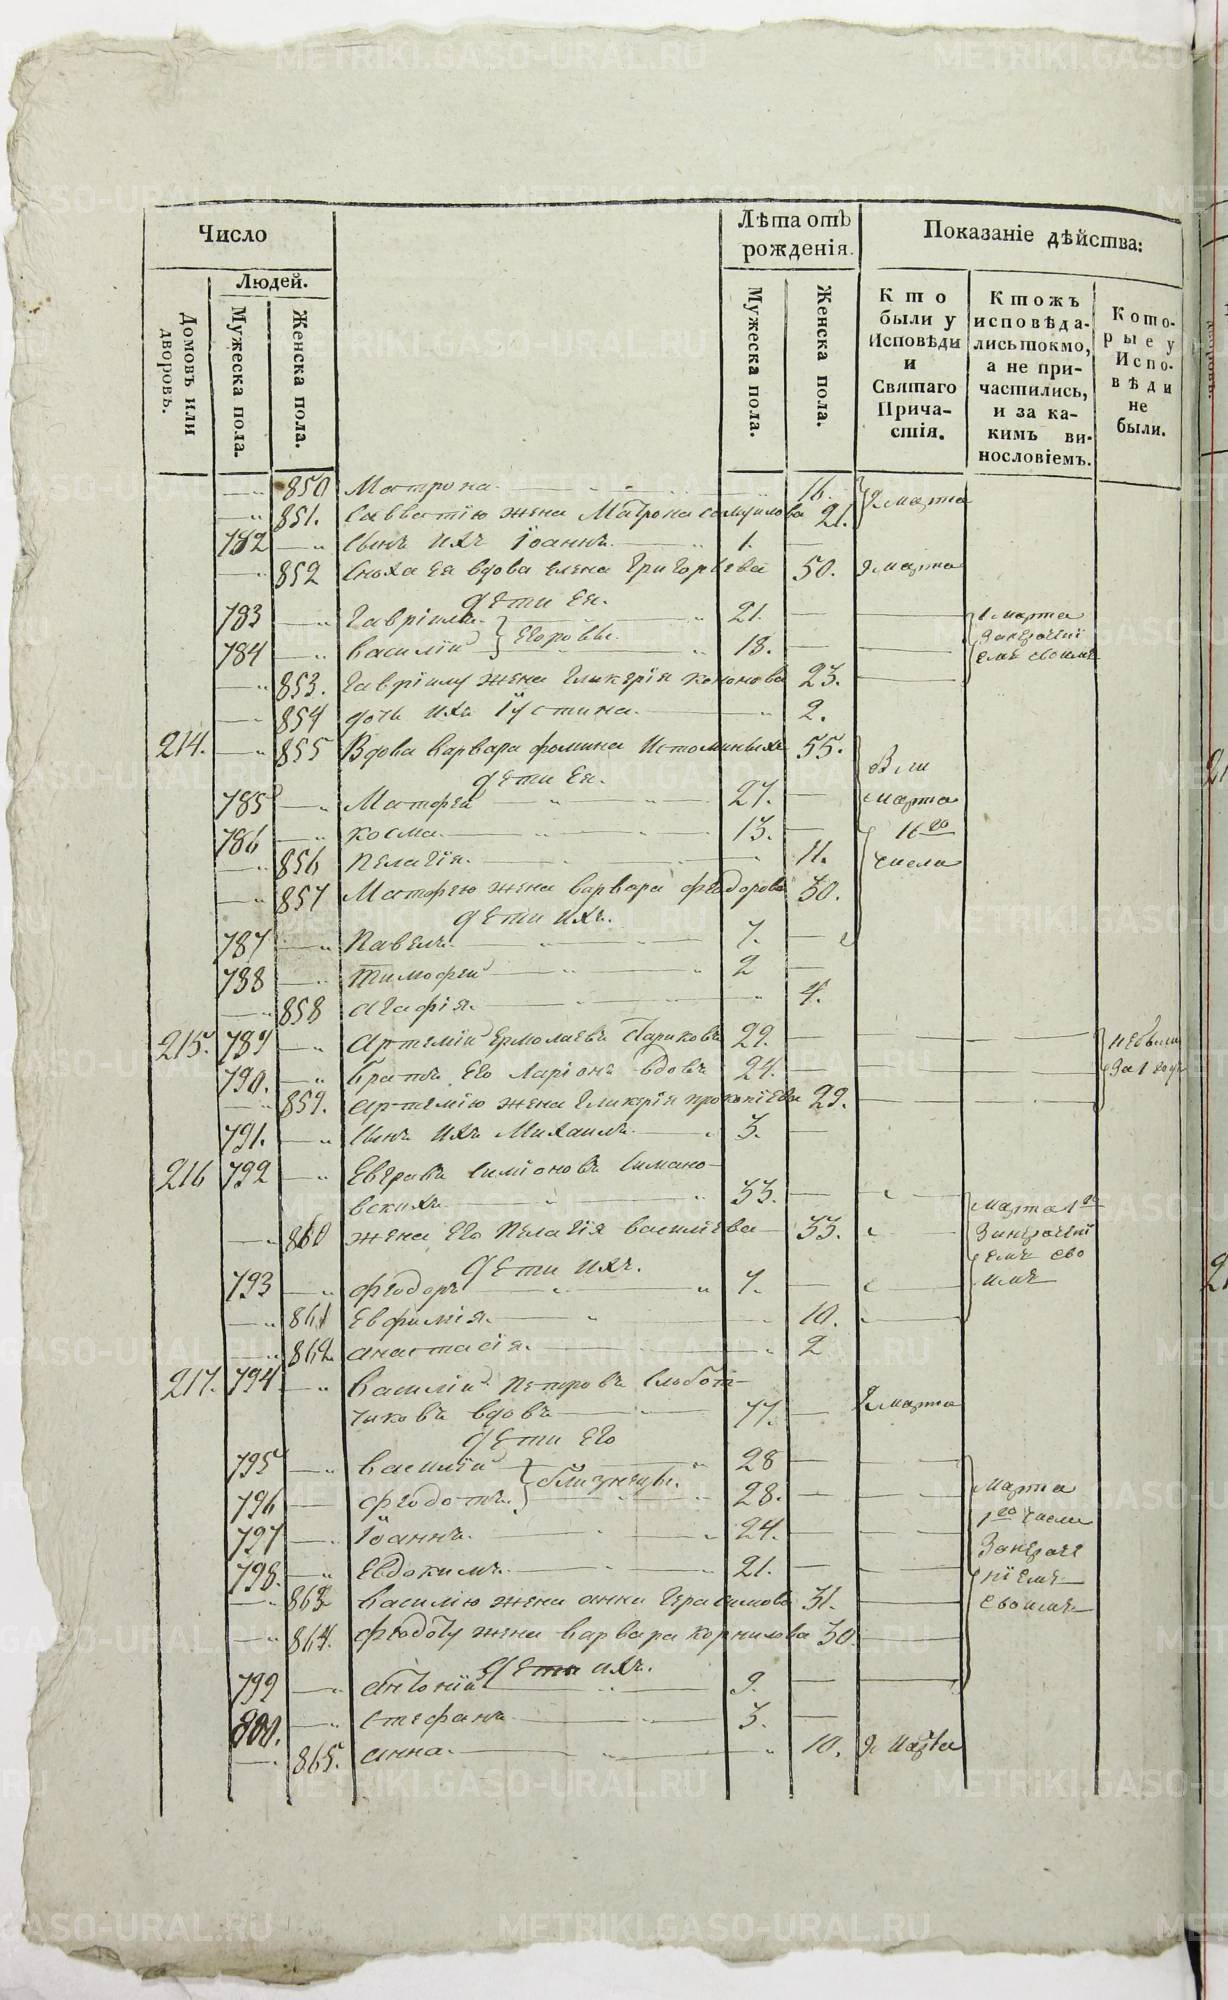 Число
Людей.
Домовъ или дворовъ.
Мужеска пола.
Женска пола.
Лѣта отъ рожденія.
Мужеска пола.
Женска пола.
Показаніе дѣйства:
Кто были у Исповѣди и Святаго Причастія.
Ктожъ исповѣдались токмо, а не причастились, и за какимъ винословіемъ.
Которые у Исповѣди не были.
850 Матрона 16. 2 марта
851. Савватію жена Матрона Самуилова 21.
782 Сынъ ихъ Іоаннъ 1.
852 Сноха Ея вдова Елена Григорьева 50. 9 марта
дети Ея.
783 Гавріилъ 21. 1 марта
784 Василій Егоровы. 18. своимъ
853. Гавріилу жена Гликерія Кононова 23.
854 дочь ихъ Іустина. 2.
214. 855 Вдова Варвара Фомина Истоминыхъ 55. были
дети Ея.
785 Матфей 27. марта
786 Косма 13. 16го
856 Пелагія. 11. числа
857 Матфею жена Варвара Феодорова 30.
дети ихъ.
787 Павелъ 7.
788 Тимофей 2
858 Агафія. 4.
215. 789 Артемій Ермолаевъ 29. небыли
790. братъ Его Ларіонъ вдовъ 24. за 1 годъ
859. Артемію жена Гликерія Прокопіева 29.
791. Сынъ ихъ Михаилъ 3.
216 792 Евграфъ Симіоновъ Симано-
вскихъ 33. марта 1го
860 жена Его Пелагія Василіева 33.
дети ихъ.
793 Феодоръ 7.
861 Евфимія. 10.
862. Анастасія. 2
217. 794 Василій Петровъ Слобот-
чиковъ вдовъ 77. 2 марта
дети Его
795 Василій 28
796 Феодотъ. близнецы. 28. марта
797 Іоаннъ. 24. 1го числа
798. Евдокимъ 21.
863 Василію жена Анна Герасимова 31. своимъ
864. Феодоту жена Варвара Корнилова 30
дети ихъ.
799 Антоній 9.
800. Стефанъ 3.
865. Анна. 10. 9 марта
METRIKI.GASO-URAL.RU